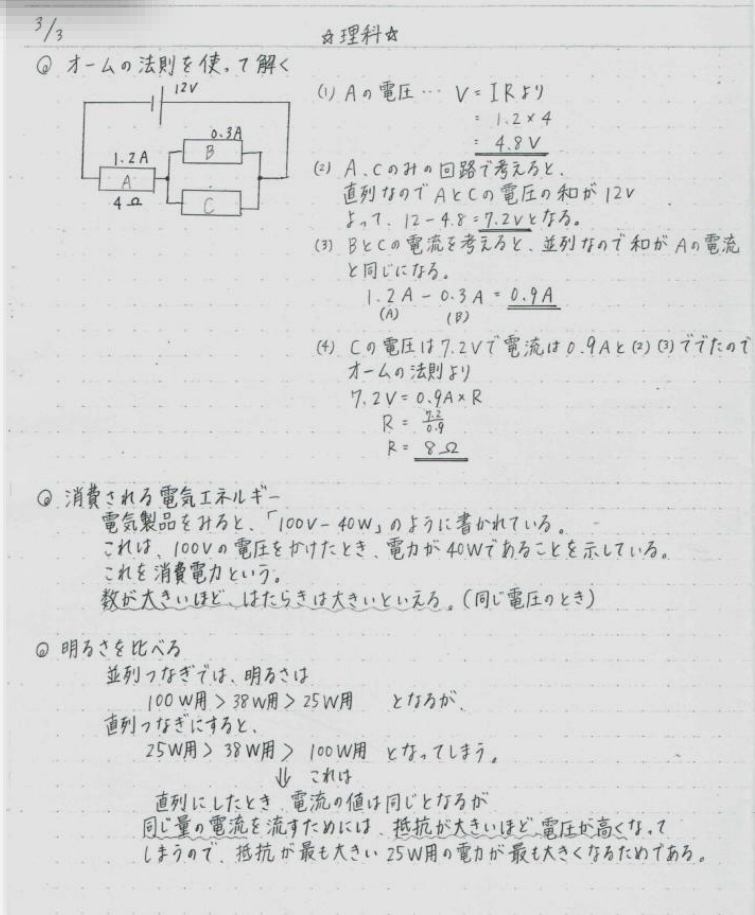 3/3
☆理科☆
◎ オームの法則を使って解く
12V
0.3A
B
1.2A
A
4Ω
C
(1) Aの電圧… V = IRより
= 1.2×4
= 4.8V
(2) A、Cのみの回路で考えると、
直列なのでAとCの電圧の和が12V
よって、12-4.8=7.2Vとなる。
(3) BとCの電流を考えると、並列なので和がAの電流
と同じになる。
1.2A - 0.3A = 0.9A
(A) (B)
(4) Cの電圧は7.2Vで電流は0.9Aと(2)(3)ででたので
オームの法則より
7.2V = 0.9A×R
R = 7.2/0.9
R = 8Ω
◎ 消費される電気エネルギー
電気製品をみると、「100V-40W」のように書かれている。
これは、100Vの電圧をかけたとき、電力が40Wであることを示している。
これを消費電力という。
数が大きいほど、はたらきは大きいといえる。(同じ電圧のとき)
◎ 明るさを比べる
並列つなぎでは、明るさは
100W用 > 38W用 > 25W用 となるが、
直列つなぎにすると、
25W用 > 38W用 > 100W用 となってしまう。
⇓ これは
直列にしたとき、電流の値は同じとなるが
同じ量の電流を流すためには、抵抗が大きいほど電圧が高くなって
しまうので、抵抗が最も大きい25W用の電力が最も大きくなるためである。